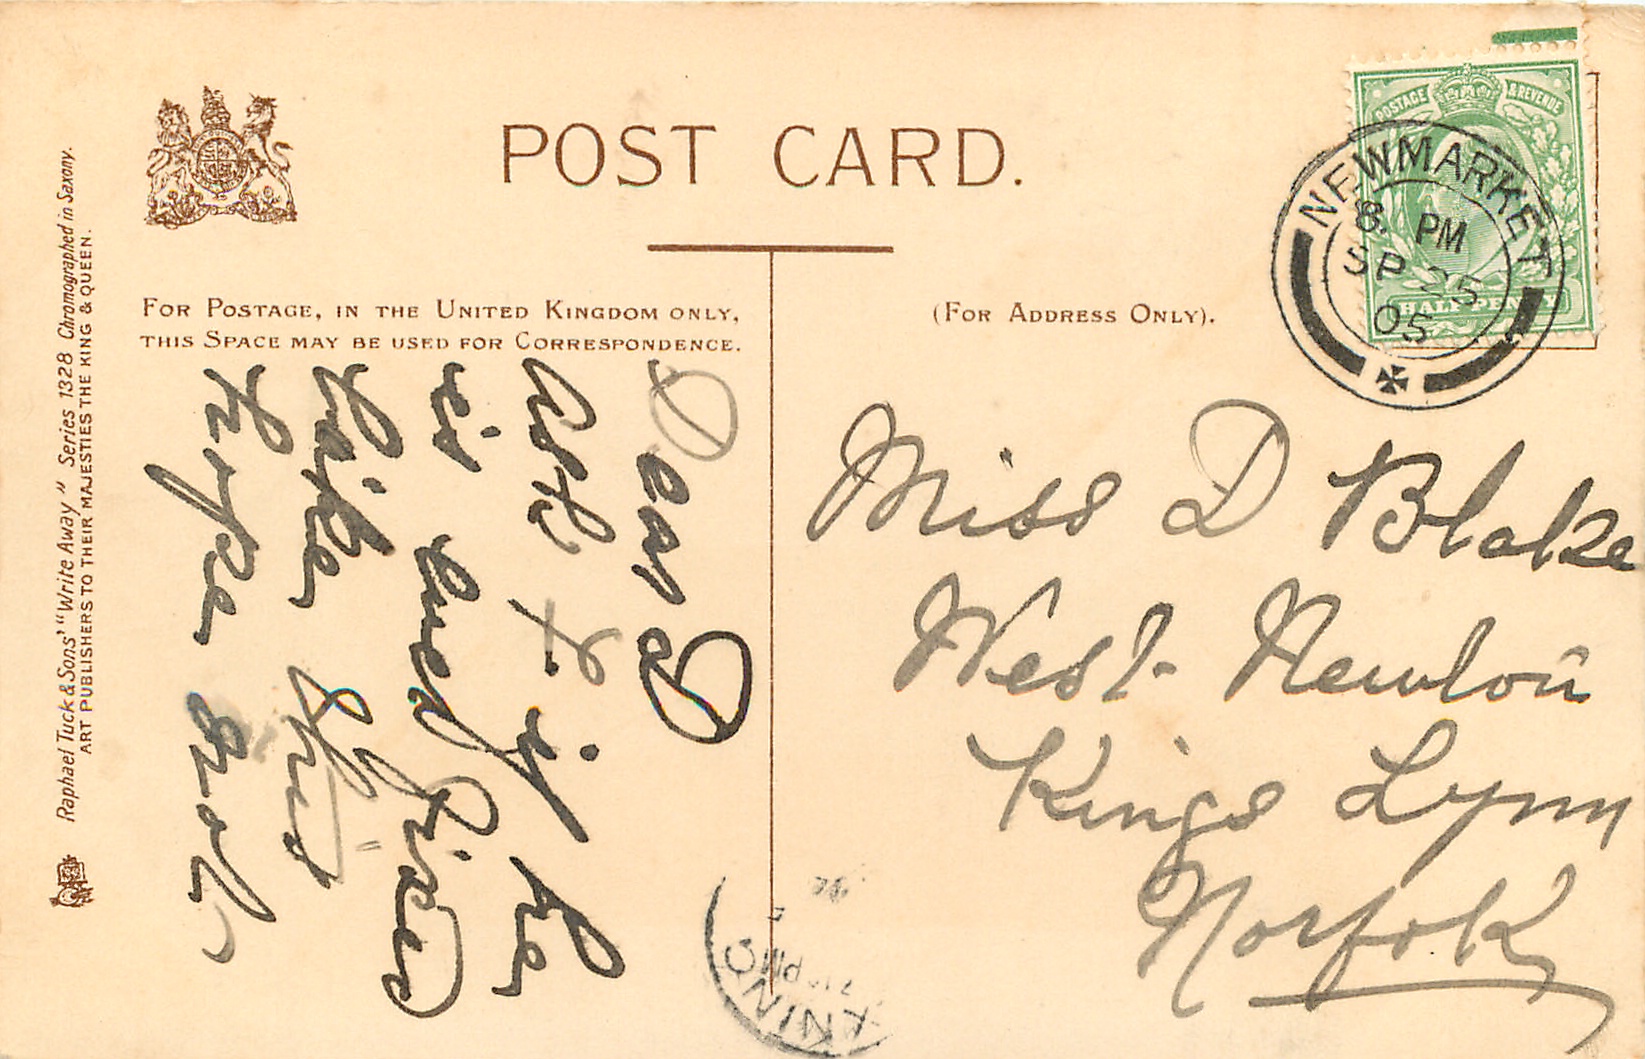 POST CARD.
FOR POSTAGE, IN THE UNITED KINGDOM ONLY,
THIS SPACE MAY BE USED FOR CORRESPONDENCE.
(FOR ADDRESS ONLY).
Raphael Tuck & Sons' "Write Away" Series 1328 Chromographed in Saxony.
ART PUBLISHERS TO THEIR MAJESTIES THE KING & QUEEN.
POSTAGE & REVENUE
HALFPENNY
NEWMARKET
8. PM
SP 25
05
Miss D Blake
West Newton
Kings Lynn
Norfolk
Dear D
Ask if he
is
like this